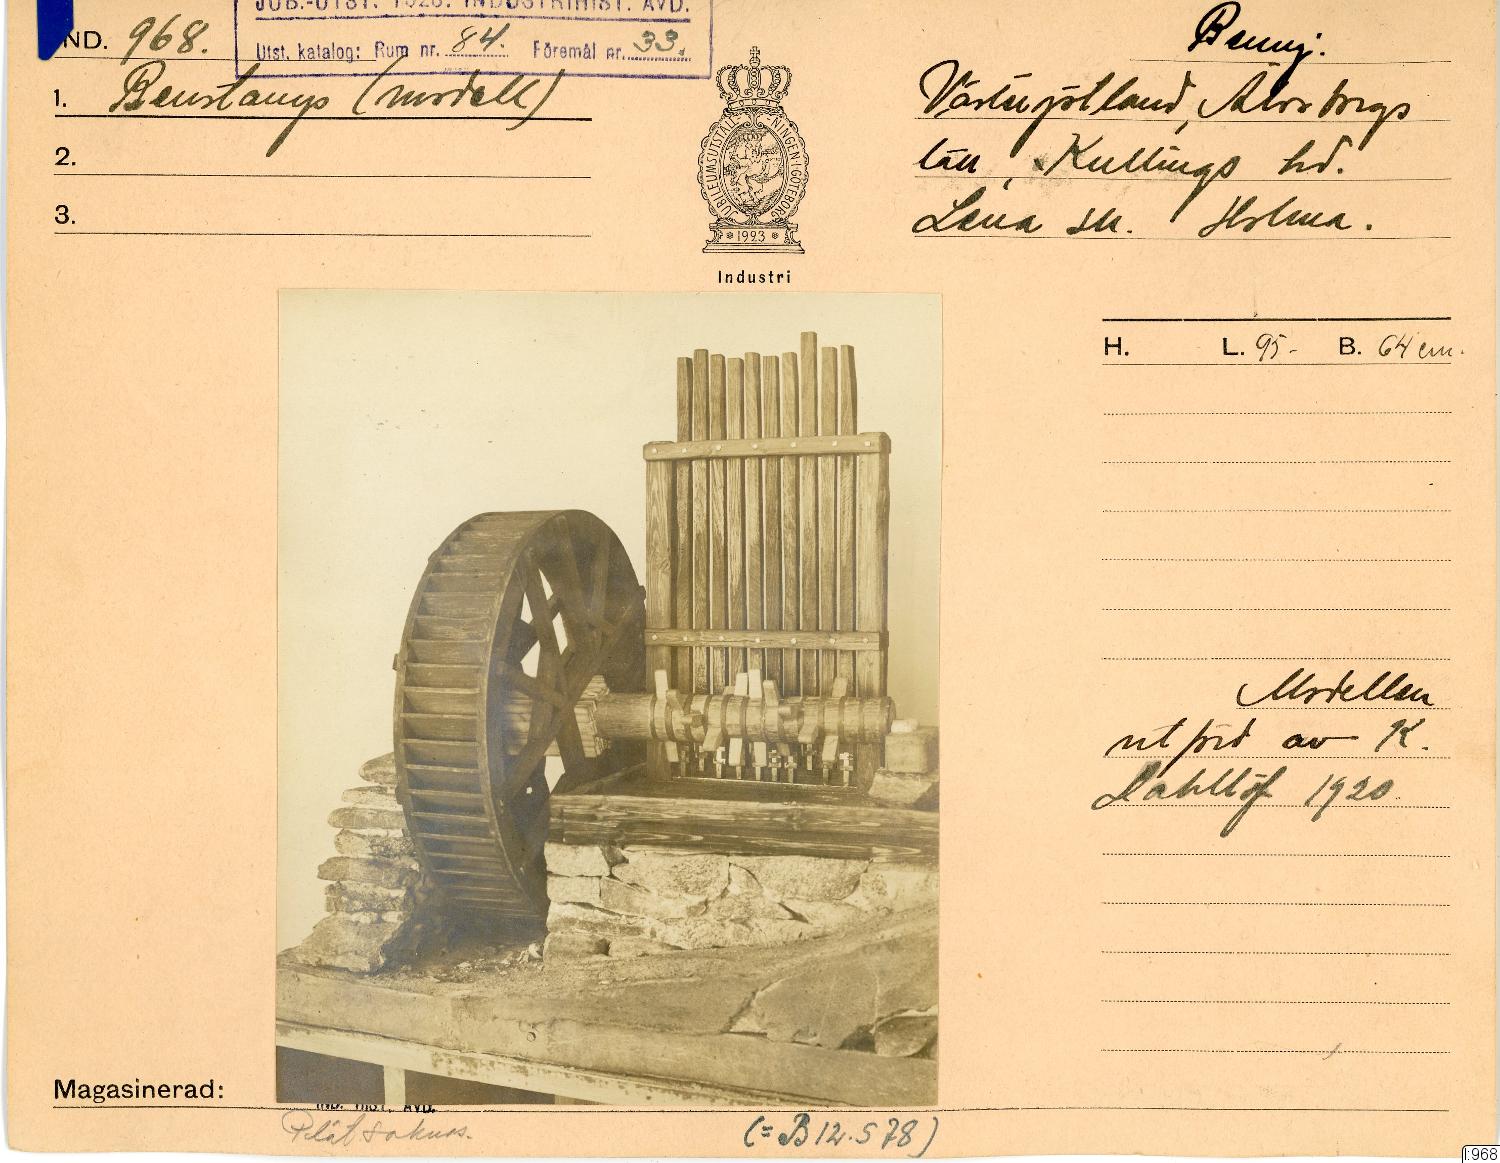 JUB.-UTST. 1923. INDUSTRIHIST. AVD.
Utst. katalog: Rum nr. 84. Föremål nr. 33.
IND. 968.
1. Benstamp (modell)
2.
3.
JUBILEUMSUTSTÄLLNINGEN I GÖTEBORG
1923
Industri
Västergötland, Älvsborgs
län, Kullings hd.
Lena sn. Holma.
H. L. 95- B. 64 cm.
Modellen
utförd av K.
Dahllöf 1920.
Magasinerad:
IND. HIST. AVD.
Plåt saknas.
(= B 12.578)
I:968